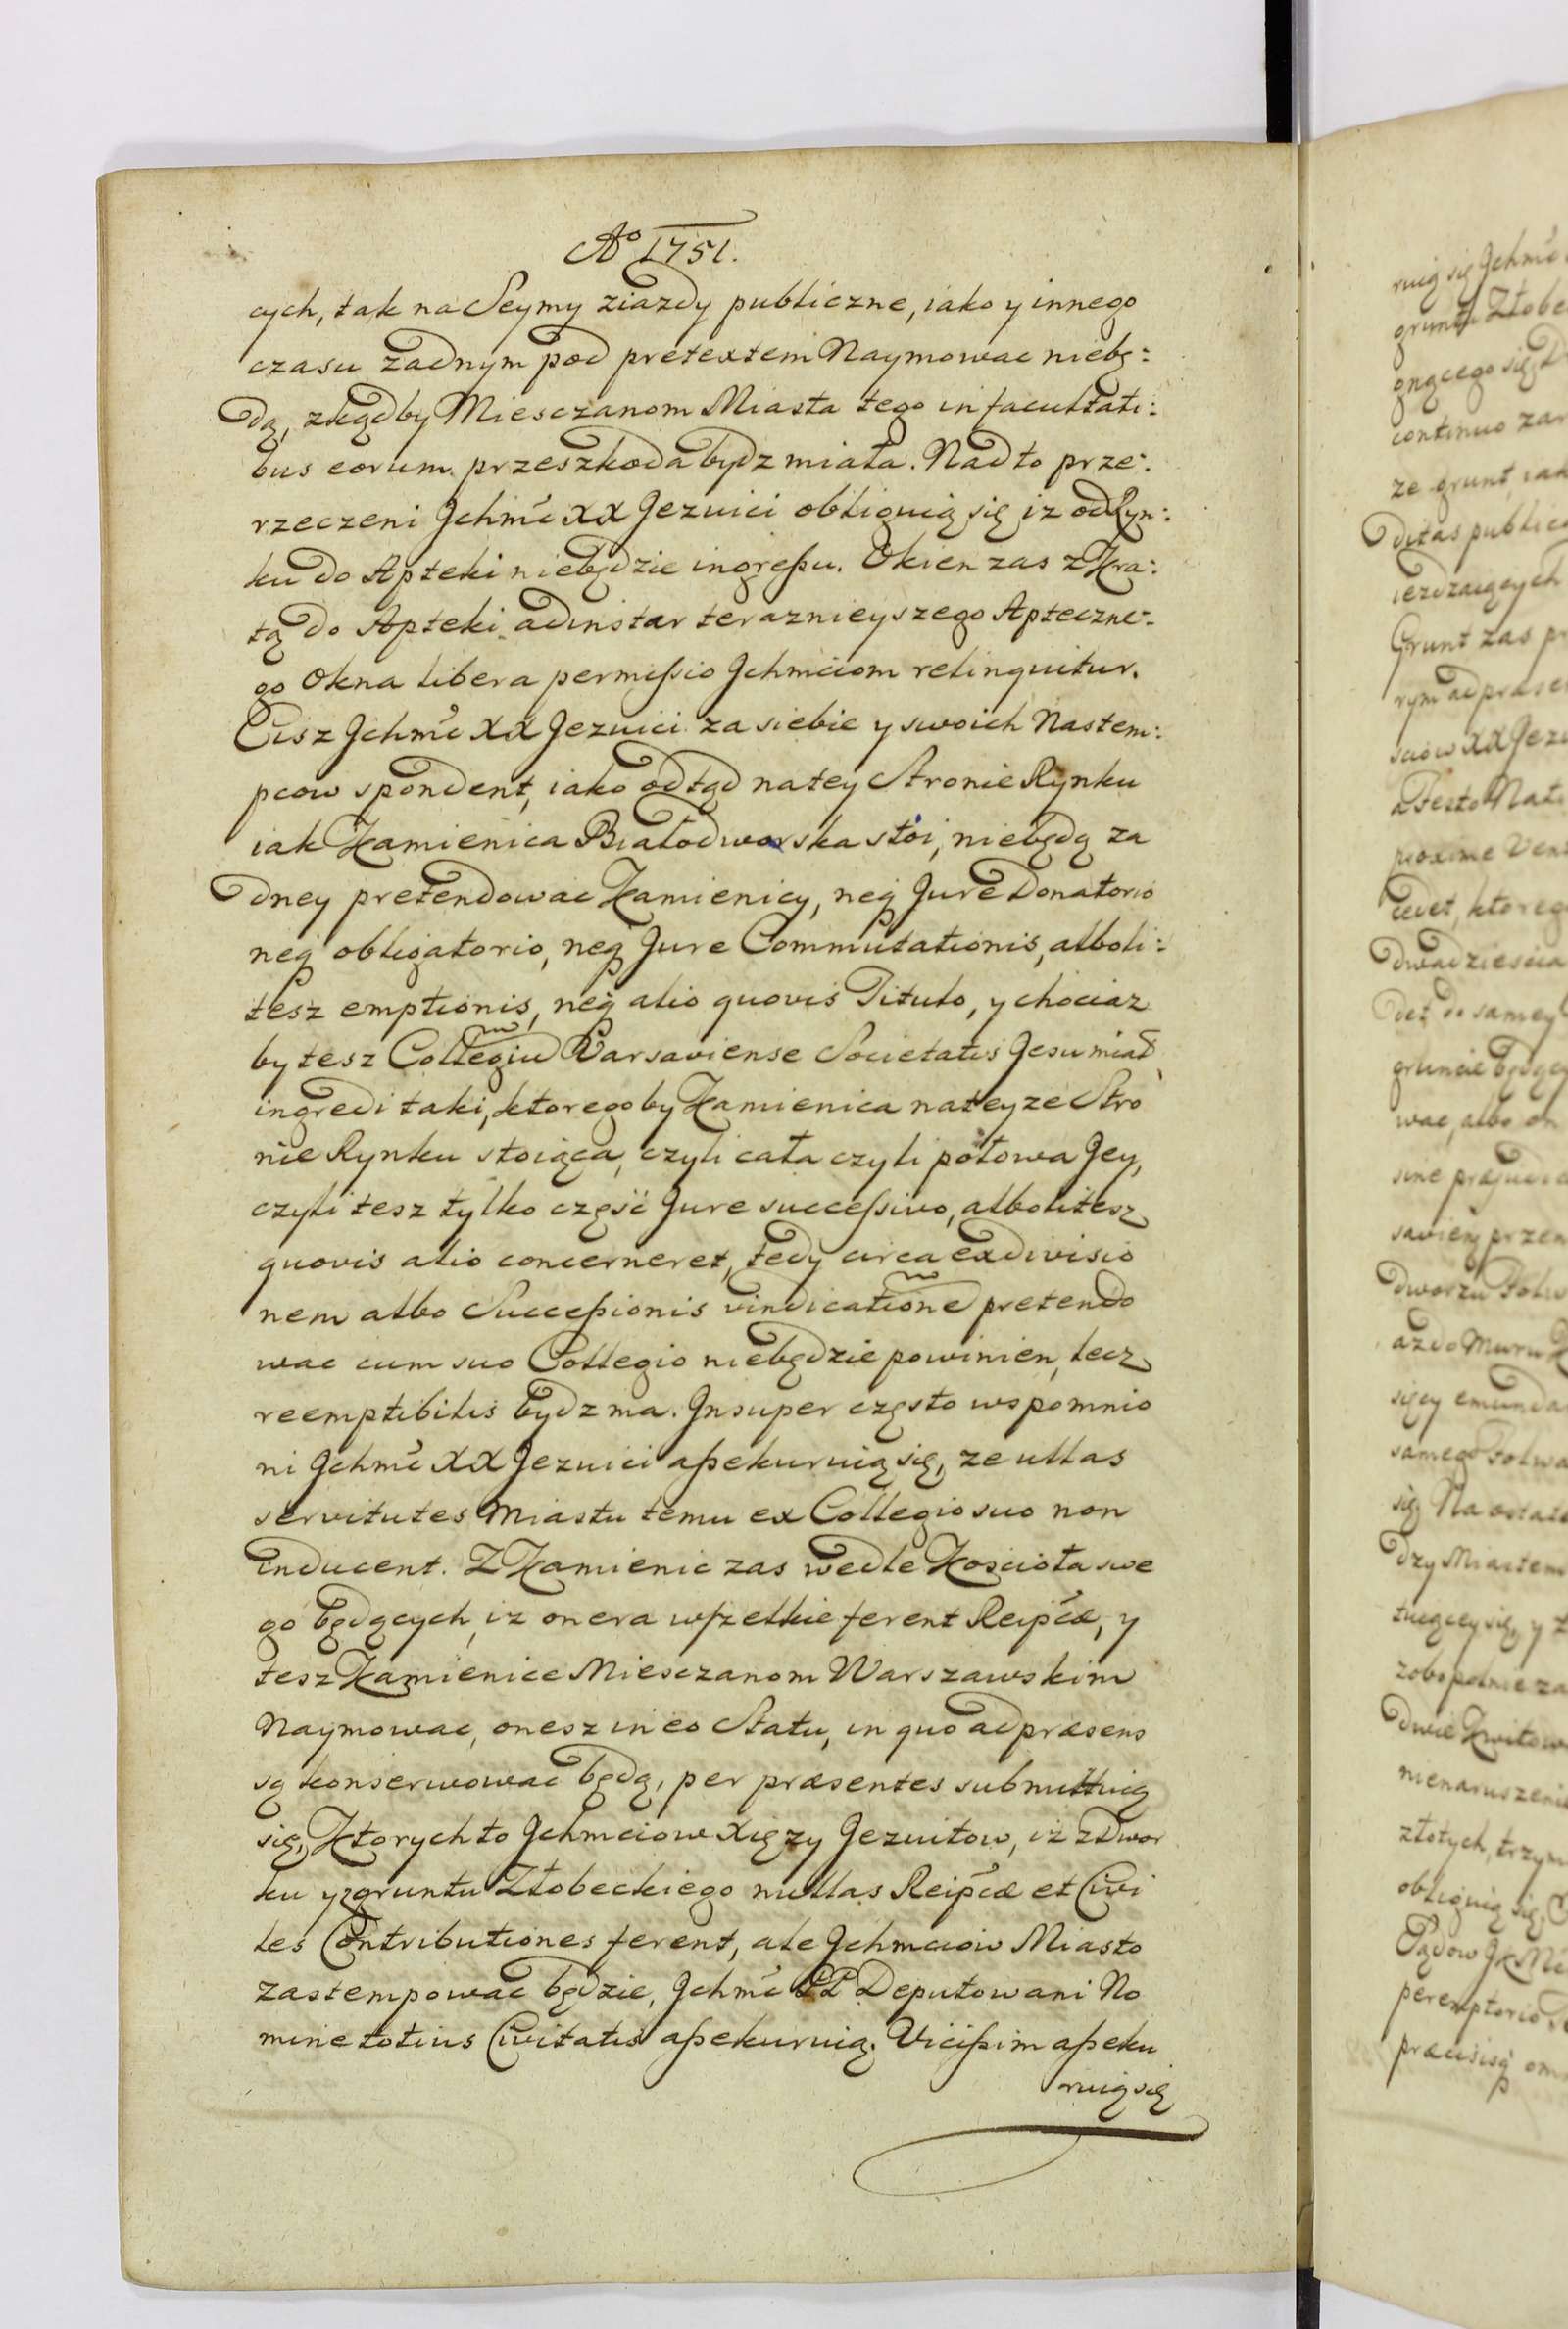 Aº 1751.
cych, tak na Seymy ziazdy publiczne, iako y innego
czasu zadnym pod pretextem Naymowac niebę:
dą, zkądby Miesczanom Miasta tego in facultati:
bus eorum przeszkoda bydz miała. Nad to prze:
rzeczeni Jchmć XX Jezuici obliguią się iz od Ryn:
ku do Apteki niebędzie ingreßu. Okien zas z Kra:
tą do Apteki ad instar teraznieyszego Apteczne:
go Okna libera permißio Jchmciom relinquitur.
Cisz Jchmć XX Jezuici za siebie y swoich Nastem:
pcow spondent, iako odtąd na tey Stronie Rynku
iak Kamienica Białodworska stoi, niebędą za
dney pretendowac Kamienicy, neq Jure Donatorio
neq obligatorio, neq Jure Commutationis, alboli:
tesz emptionis, neq alio quovis Titulo, y chociaz
by tesz Collegiu Varsaviense Societatis Jesu miał
ingredi taki, ktoregoby Kamienica na teyze Stro
nie Rynku stoiąca, czyli cała czyli połowa Jey,
czyli tesz tylko częsć Jure succeßivo, albolitesz
quovis alio concerneret, tedy circa exdivisio
nem albo Succeßionis vindicatione pretendo
wac cum suo Collegio niebędzie powinien, lecz
reemptibilis bydz ma. Insuper często wspomnio
ni Jchmć XX Jezuici aßekuruią się, ze ullas
servitutes Miastu temu ex Collegio suo non
inducent. Z Kamienic zas wedle Koscioła swe
go będących, iz onera wszelkie ferent Reipcæ, y
tesz Kamienice Miesczanom Warszawskim
Naymowac, onesz in eo Statu, in quo ad præsens
są konserwowac będą, per præsentes submittuią
się, Ktorych to Jchmciow Xięzy Jezuitow, iz z Dwor
ku y z gruntu Złobeckiego nullas Reipcæ et Civi
les Contributiones ferent, ale Jchmciow Miasto
zastempowac będzie, Jchmć PP Deputowani No
mine totius Civitatis aßekuruią. Vicißim aßeku
ruią się
ruią się Jchmć
gruntu Złobe
continuo
ze grunt iak
ditas public
iezdzaiących
Grunt zas
rym ad præsen
sciow XX Jezu
cedet, ktorego
dwadziescia
gruncie będący
wac, albo
sine præjudic
az do Muru
samego Folwa
się. Na ostat
dzy Miastem
zobopolnie za
dwie Kwitow
nienaruszenie
złotych, trzym
obliguią się
peremptorio